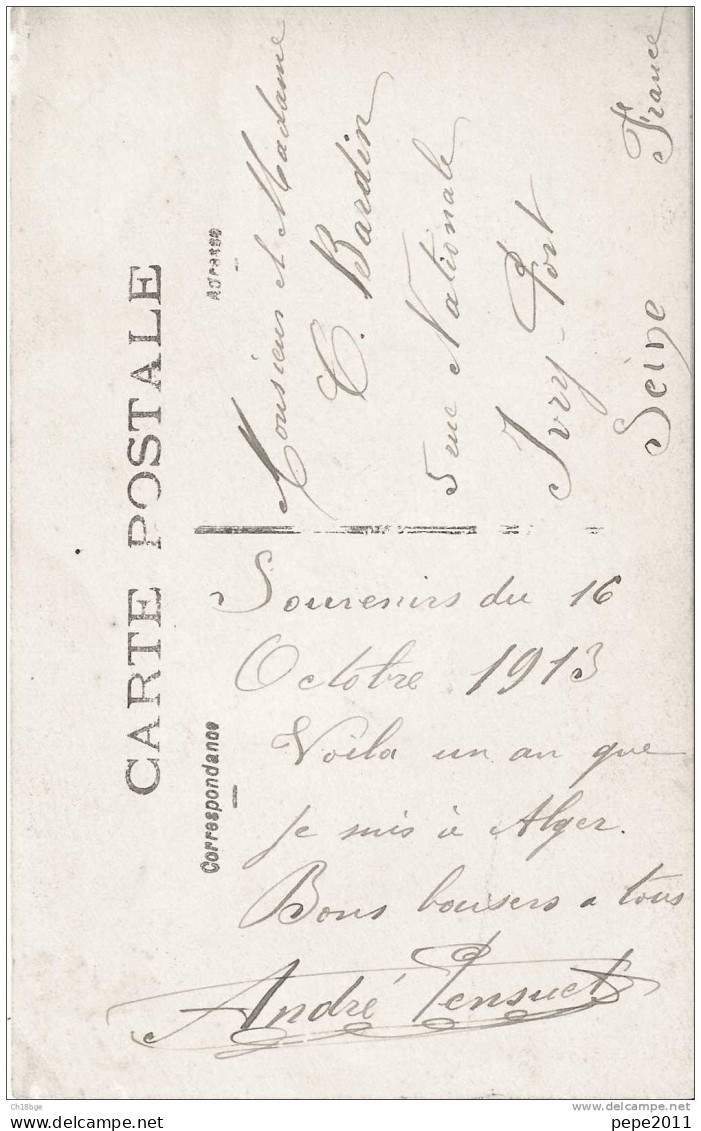 CARTE POSTALE
Correspondance
Adresse
Souvenirs du 16
Octobre 1913
Voila un an que
je suis à Alger.
Bons baisers a tous
André Pensuet
Monsieur et Madame
C. Bardin
5 rue Nationale
Ivry-Port
Seine France
Ch18bge
delcampe.net
pepe2011